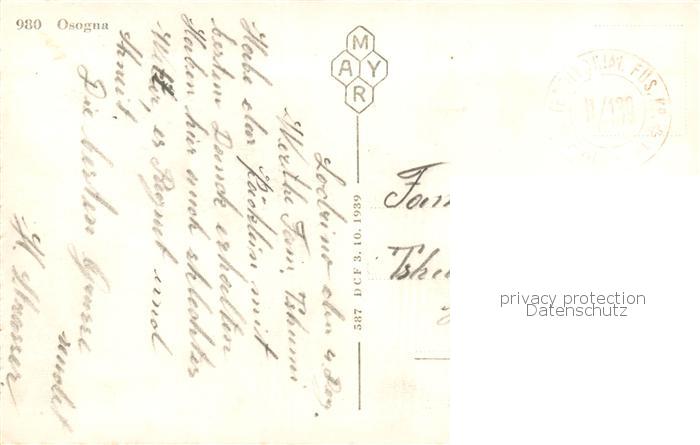 980 Osogna
MAYR
587 DCF 3. 10. 1939
Lodrino den 4 Dez.
Werthe Fam. Tshumi
Habe das Päcklein mit
besten Danck erhalten
Haben hier auch schlechtes
Wetter, es Regnet und
Schneit,
Die besten Grüsse
sendet
H. Strasser
FÜS.
Fam
Tshu
privacy protection
Datenschutz